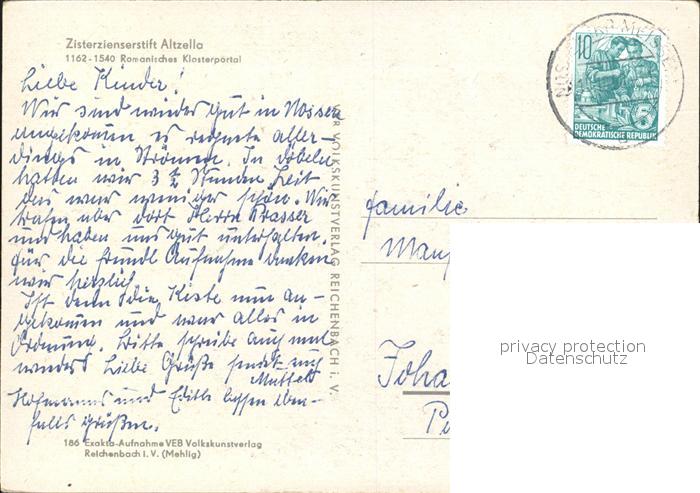 Zisterzienserstift Altzella
1162-1540 Romanisches Klosterportal
Liebe Kinder!
Wir sind wieder gut in Nossen
angekommen es regnete aller-
dings in Strömen. In Döbeln
hatten wir 3 ½ Stunden Zeit
das war weniger schön. Wir
trafen aber dort Herrn Prasser
und haben uns gut unterhalten.
für die freundl Aufnahme danken
wir herzlich
Ist denn die Kiste nun an-
gekommen und war alles in
Ordnung. Bitte schreibt auch mal
wieder Liebe Grüße sendet euch
Mutter
Hofmanns und Edith lassen eben-
falls grüßen.
186 Exakta-Aufnahme VEB Volkskunstverlag
Reichenbach i. V. (Mehlig)
VEB VOLKSKUNSTVERLAG REICHENBACH i. V.
10
5
DEUTSCHE
DEMOKRATISCHE REPUBLIK
familie
privacy protection
Datenschutz